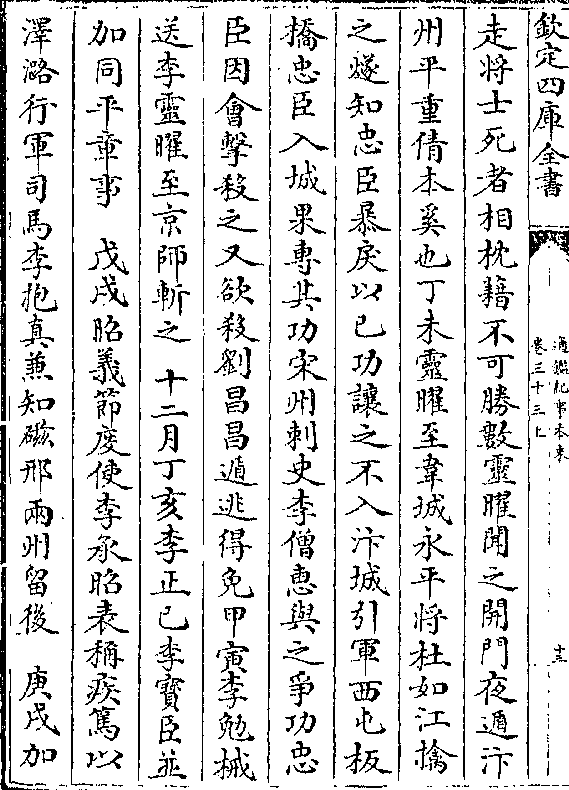 欽定四庫全書
通鑑紀事本末
卷三十三上
十三
走將士死者相枕藉不可勝數靈曜聞之開門夜遁汴
州平重倩本奚也丁未靈曜至韋城永平將杜如江擒
之燧知忠臣暴戾以已功讓之不入汴城引軍西屯板
橋忠臣入城果專其功宋州刺史李僧惠與之爭功忠
臣因會擊殺之又欲殺劉昌昌遁逃得免甲寅李勉械
送李靈曜至京師斬之　十二月丁亥李正已李寶臣並
加同平章事　戊戌昭義節度使李承昭表稱疾篤以
澤潞行軍司馬李抱真兼知磁邢兩州留後　庚戌加